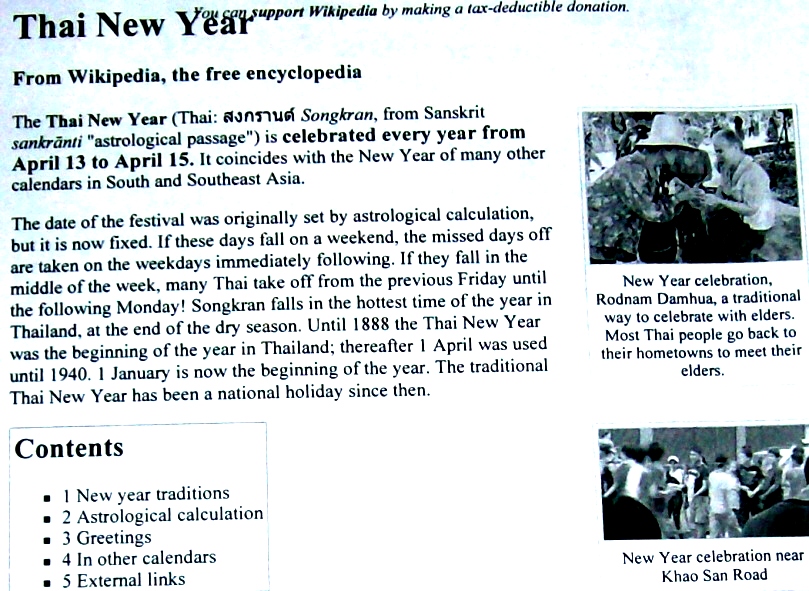 You can support Wikipedia by making a tax-deductible donation.
Thai New Year
From Wikipedia, the free encyclopedia
The Thai New Year (Thai: สงกรานต์ Songkran, from Sanskrit
sankrānti "astrological passage") is celebrated every year from
April 13 to April 15. It coincides with the New Year of many other
calendars in South and Southeast Asia.
The date of the festival was originally set by astrological calculation,
but it is now fixed. If these days fall on a weekend, the missed days off
are taken on the weekdays immediately following. If they fall in the
middle of the week, many Thai take off from the previous Friday until
the following Monday! Songkran falls in the hottest time of the year in
Thailand, at the end of the dry season. Until 1888 the Thai New Year
was the beginning of the year in Thailand; thereafter 1 April was used
until 1940. 1 January is now the beginning of the year. The traditional
Thai New Year has been a national holiday since then.
New Year celebration,
Rodnam Damhua, a traditional
way to celebrate with elders.
Most Thai people go back to
their hometowns to meet their
elders.
Contents
1 New year traditions
2 Astrological calculation
3 Greetings
4 In other calendars
5 External links
New Year celebration near
Khao San Road